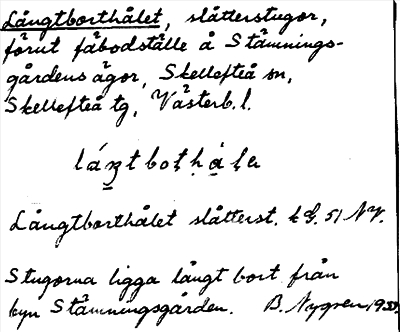 Långtborthålet, slåtterstugor,
förut fäbodställe å Stämnings-
gårdens ägor, Skellefteå sn,
Skellefteå tg, Västerb. l.
Långtborthålet slåtterst. k G. 51 NY.
Stugorna ligga långt bort från
byn Stämningsgården. B. Nygren